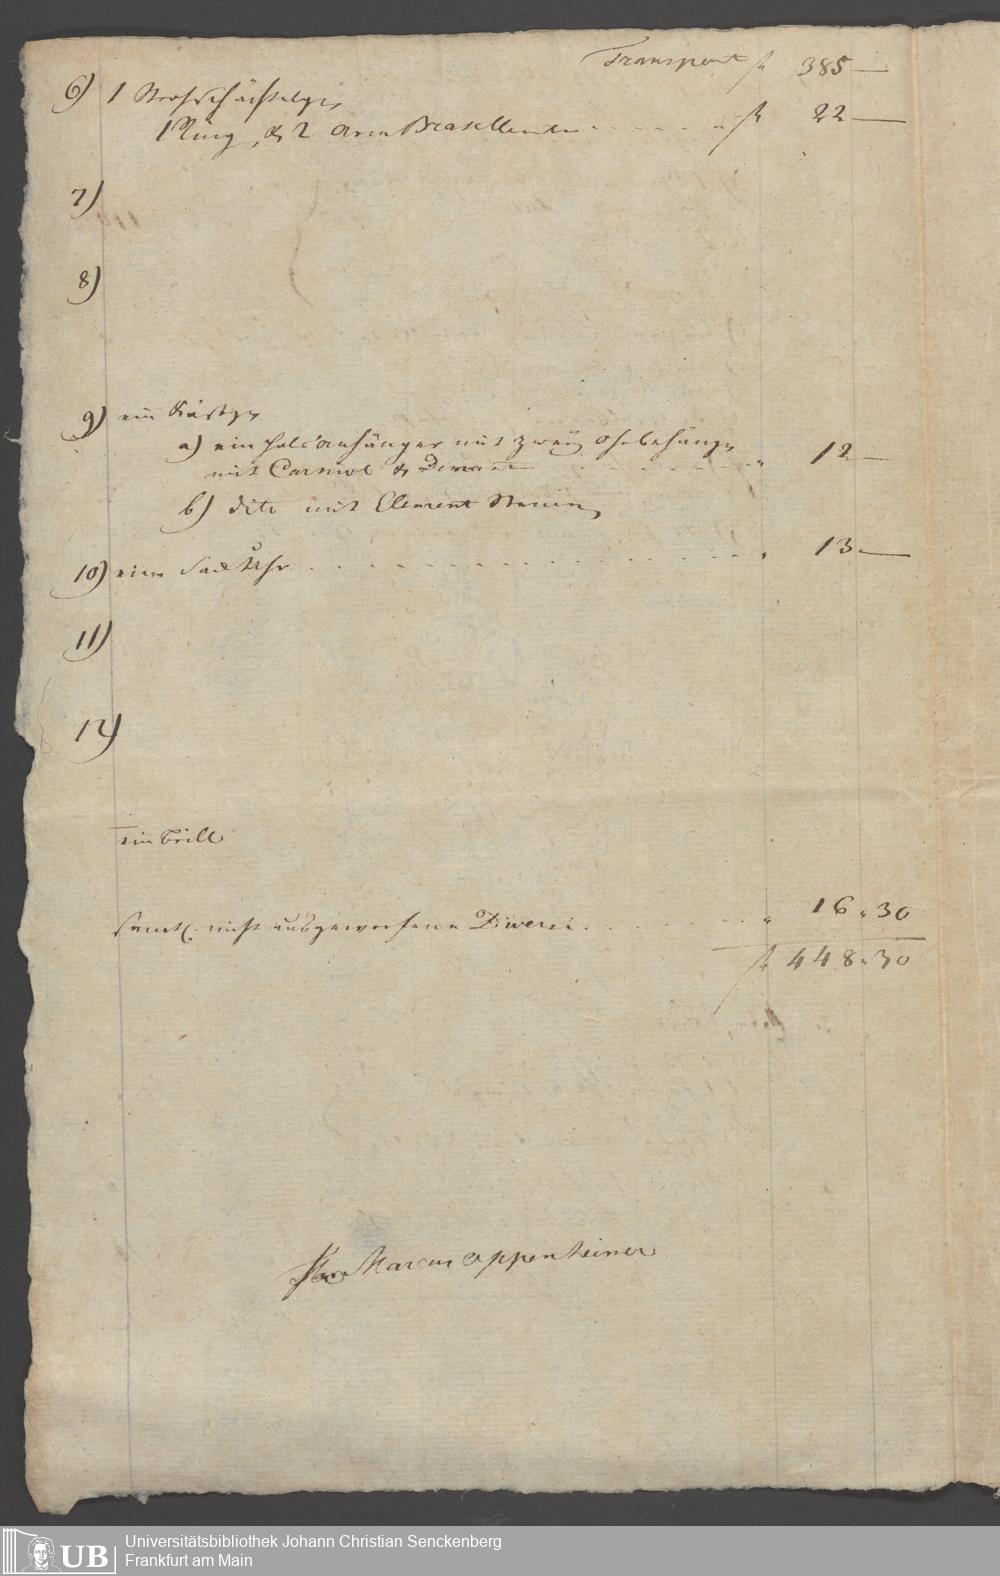 Transport f 385 —
6) 1 Strohschächtelgen
1 Ring, & 2 Arm Braselletten . . . . . . . f 22 —
7)
8)
9) ein Kästgen
a) ein Halsanhänger mit zweÿ Ohrbehänge
mit Carniol & Demant . . . . . . . „ 12 —
b) dito mit Clement Steinen
10) eine Sack Uhr . . . . . . . . . . . . „ 13 —
11)
12)
ein Brill
sämtl. nicht ausgeworfene Diversi . . . . . . . „ 16 „ 30
f 448 „ 30
Marcus Oppenheimer
UB
Universitätsbibliothek Johann Christian Senckenberg
Frankfurt am Main